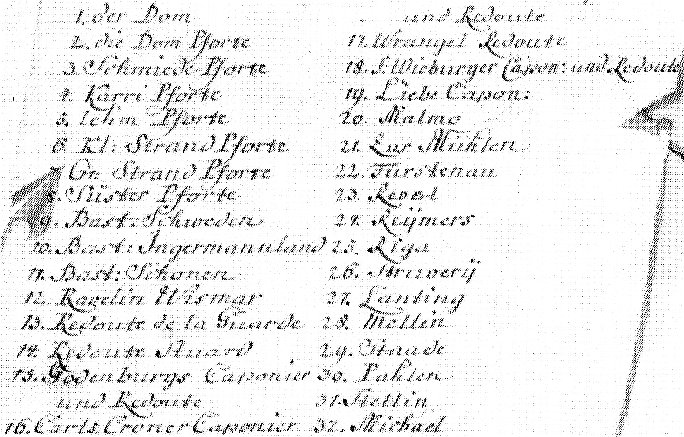 1. der Dom
2. die Dom Pforte
3. Schmiede Pforte
4. Karri Pforte
5. Lehm Pforte
6. Kl: Strand Pforte
7. Gr. Strand Pforte
8. Süster Pforte
9. Bast: Schweden
10. Bast: Ingermannland
11. Bast: Schonen
12. Ravelin Wismar
13. Redoute de la Guarde
14. Redoute Stuard
15. Caponier
und Redoute
16. Carls Croner Caponier
und Redoute
17. Wrangel Redoute
18. Capon: und Redoute
19. Capon:
20. Malmo
21. Zur Mühlen
22. Fürstenau
23. Reval
24. Reijmers
25. Riga
26.
27. Lanting
28. Mellin
29. Staade
30. Pahlen
31. Stettin
32. Michael